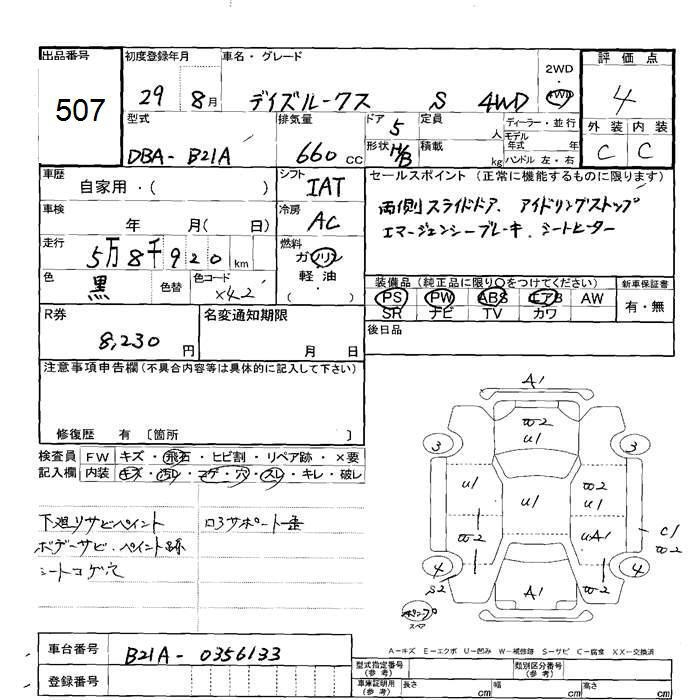 出品番号
507
初度登録年月
29 年 8 月
車名・グレード
デイズルークス S 4WD
2WD
・
4WD
評価点
4
外装 内装
C C
型式
DBA-B21A
排気量
660 cc
ドア 5
形状 H/B
定員 人
積載 kg
ディーラー・並行
モデル
年式 年
ハンドル 左・右
車歴
自家用・( )
シフト
IAT
セールスポイント (正常に機能するものに限ります)
両側スライドドア、アイドリングストップ
エマージェンシーブレーキ、シートヒーター
車検
年 月( 日)
冷房
AC
走行
5万8千920 km
燃料
ガソリン
軽油・
( )
色
黒
色替
色コード
×42
装備品 (純正品に限り○をつけてください)
PS PW ABS エアB AW
SR ナビ TV カワ
新車保証書
有・無
R券
8,230 円
名変通知期限
月 日
後日品
注意事項申告欄 (不具合内容等は具体的に記入して下さい)
修復歴 有 〔箇所 〕
検査員 FW キズ・飛石・ヒビ割・リペア跡・×要
記入欄 内装 キズ・汚れ・コゲ・穴・スレ・キレ・破レ
下廻りサビペイント
ボデーサビ、ペイント跡
シートコゲ穴
コアサポート歪
A1
W2
U1
3
3
U1
U1
W2
U1
W2
UA1
C1
W2
4
4
S2
A1
W2
スペア
A-キズ E-エクボ U-凹み W-補修跡 S-サビ C-腐食 XX-交換済
車台番号
B21A-0356133
登録番号
型式指定番号
(参考)
類別区分番号
(参考)
車庫証明用
(参考)
長さ cm
幅 cm
高さ cm